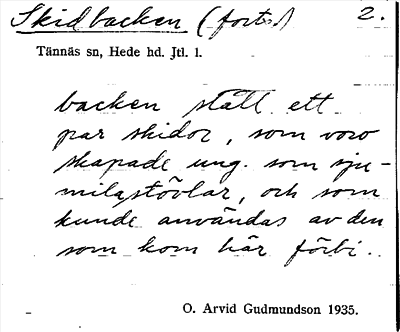 Skidbacken (forts.) 2.
Tännäs sn, Hede hd. Jtl. l.
backen ställ ett
par skidor, som voro
skapade ung. som sju-
milastövlar, och som
kunde användas av den
som kom här förbi..
O. Arvid Gudmundson 1935.